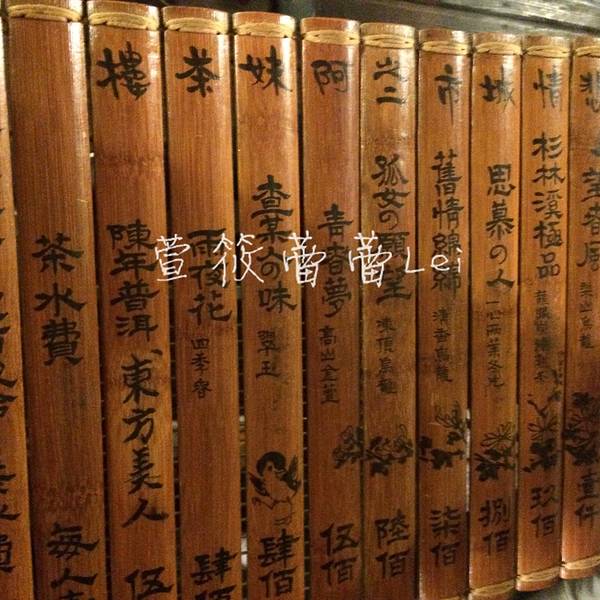 悲 望春風 梨山烏龍 壹仟
情 杉林溪極品 玖佰
城 思慕の人 捌佰
市 舊情綿綿 清香烏龍 柒佰
之二 孤女の願望 凍頂烏龍 陸佰
阿 青春夢 高山金萱 伍佰
妹 查某人の味 翠玉 肆佰
茶 雨夜花 四季春 肆佰
樓 陳年普洱 東方美人 伍
茶水費 每人
萱筱蕾蕾Lei